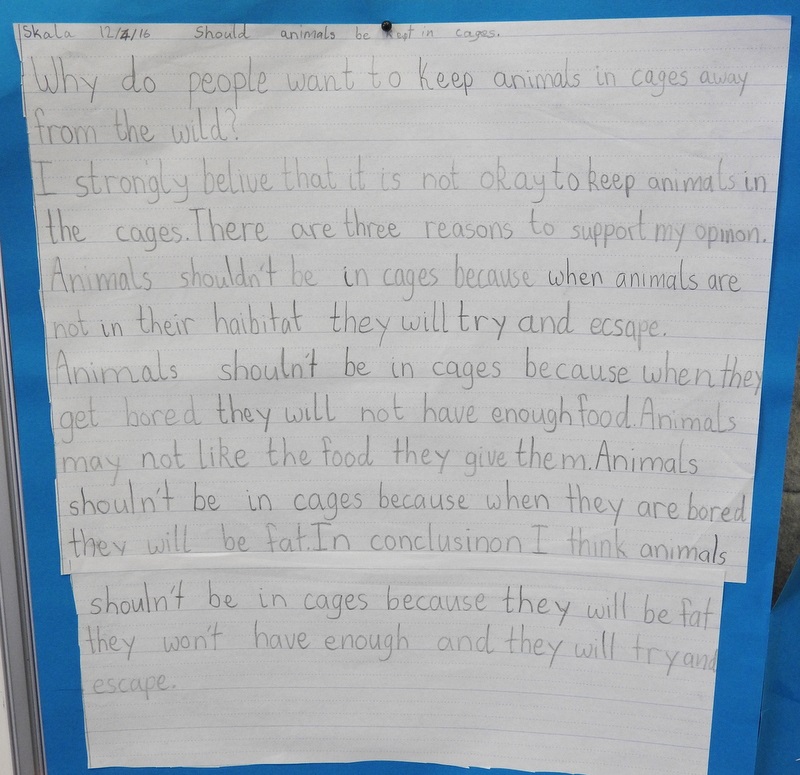 Skala 12/4/16 Should animals be kept in cages.
Why do people want to keep animals in cages away
from the wild?
I strongly belive that it is not okay to keep animals in
the cages. There are three reasons to support my opinon.
Animals shouldn't be in cages because when animals are
not in their haibitat they will try and ecsape.
Animals shouln't be in cages because when they
get bored they will not have enough food. Animals
may not like the food they give them. Animals
shouln't be in cages because when they are bored
they will be fat. In conclusinon I think animals
shouln't be in cages because they will be fat
they won't have enough and they will try and
escape.